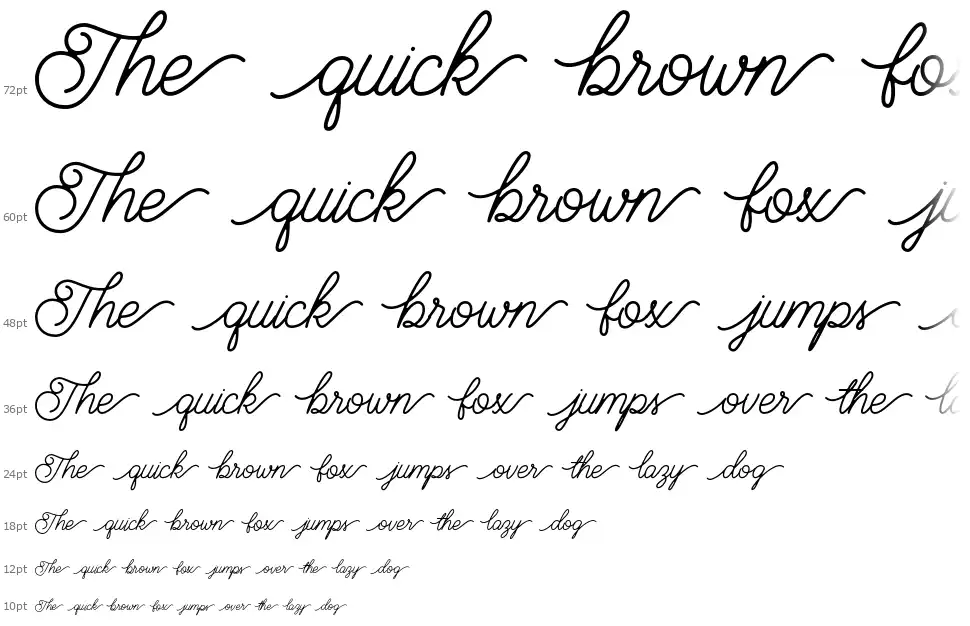 72pt The quick brown fox
60pt The quick brown fox ju
48pt The quick brown fox jumps
36pt The quick brown fox jumps over the la
24pt The quick brown fox jumps over the lazy dog
18pt The quick brown fox jumps over the lazy dog
12pt The quick brown fox jumps over the lazy dog
10pt The quick brown fox jumps over the lazy dog